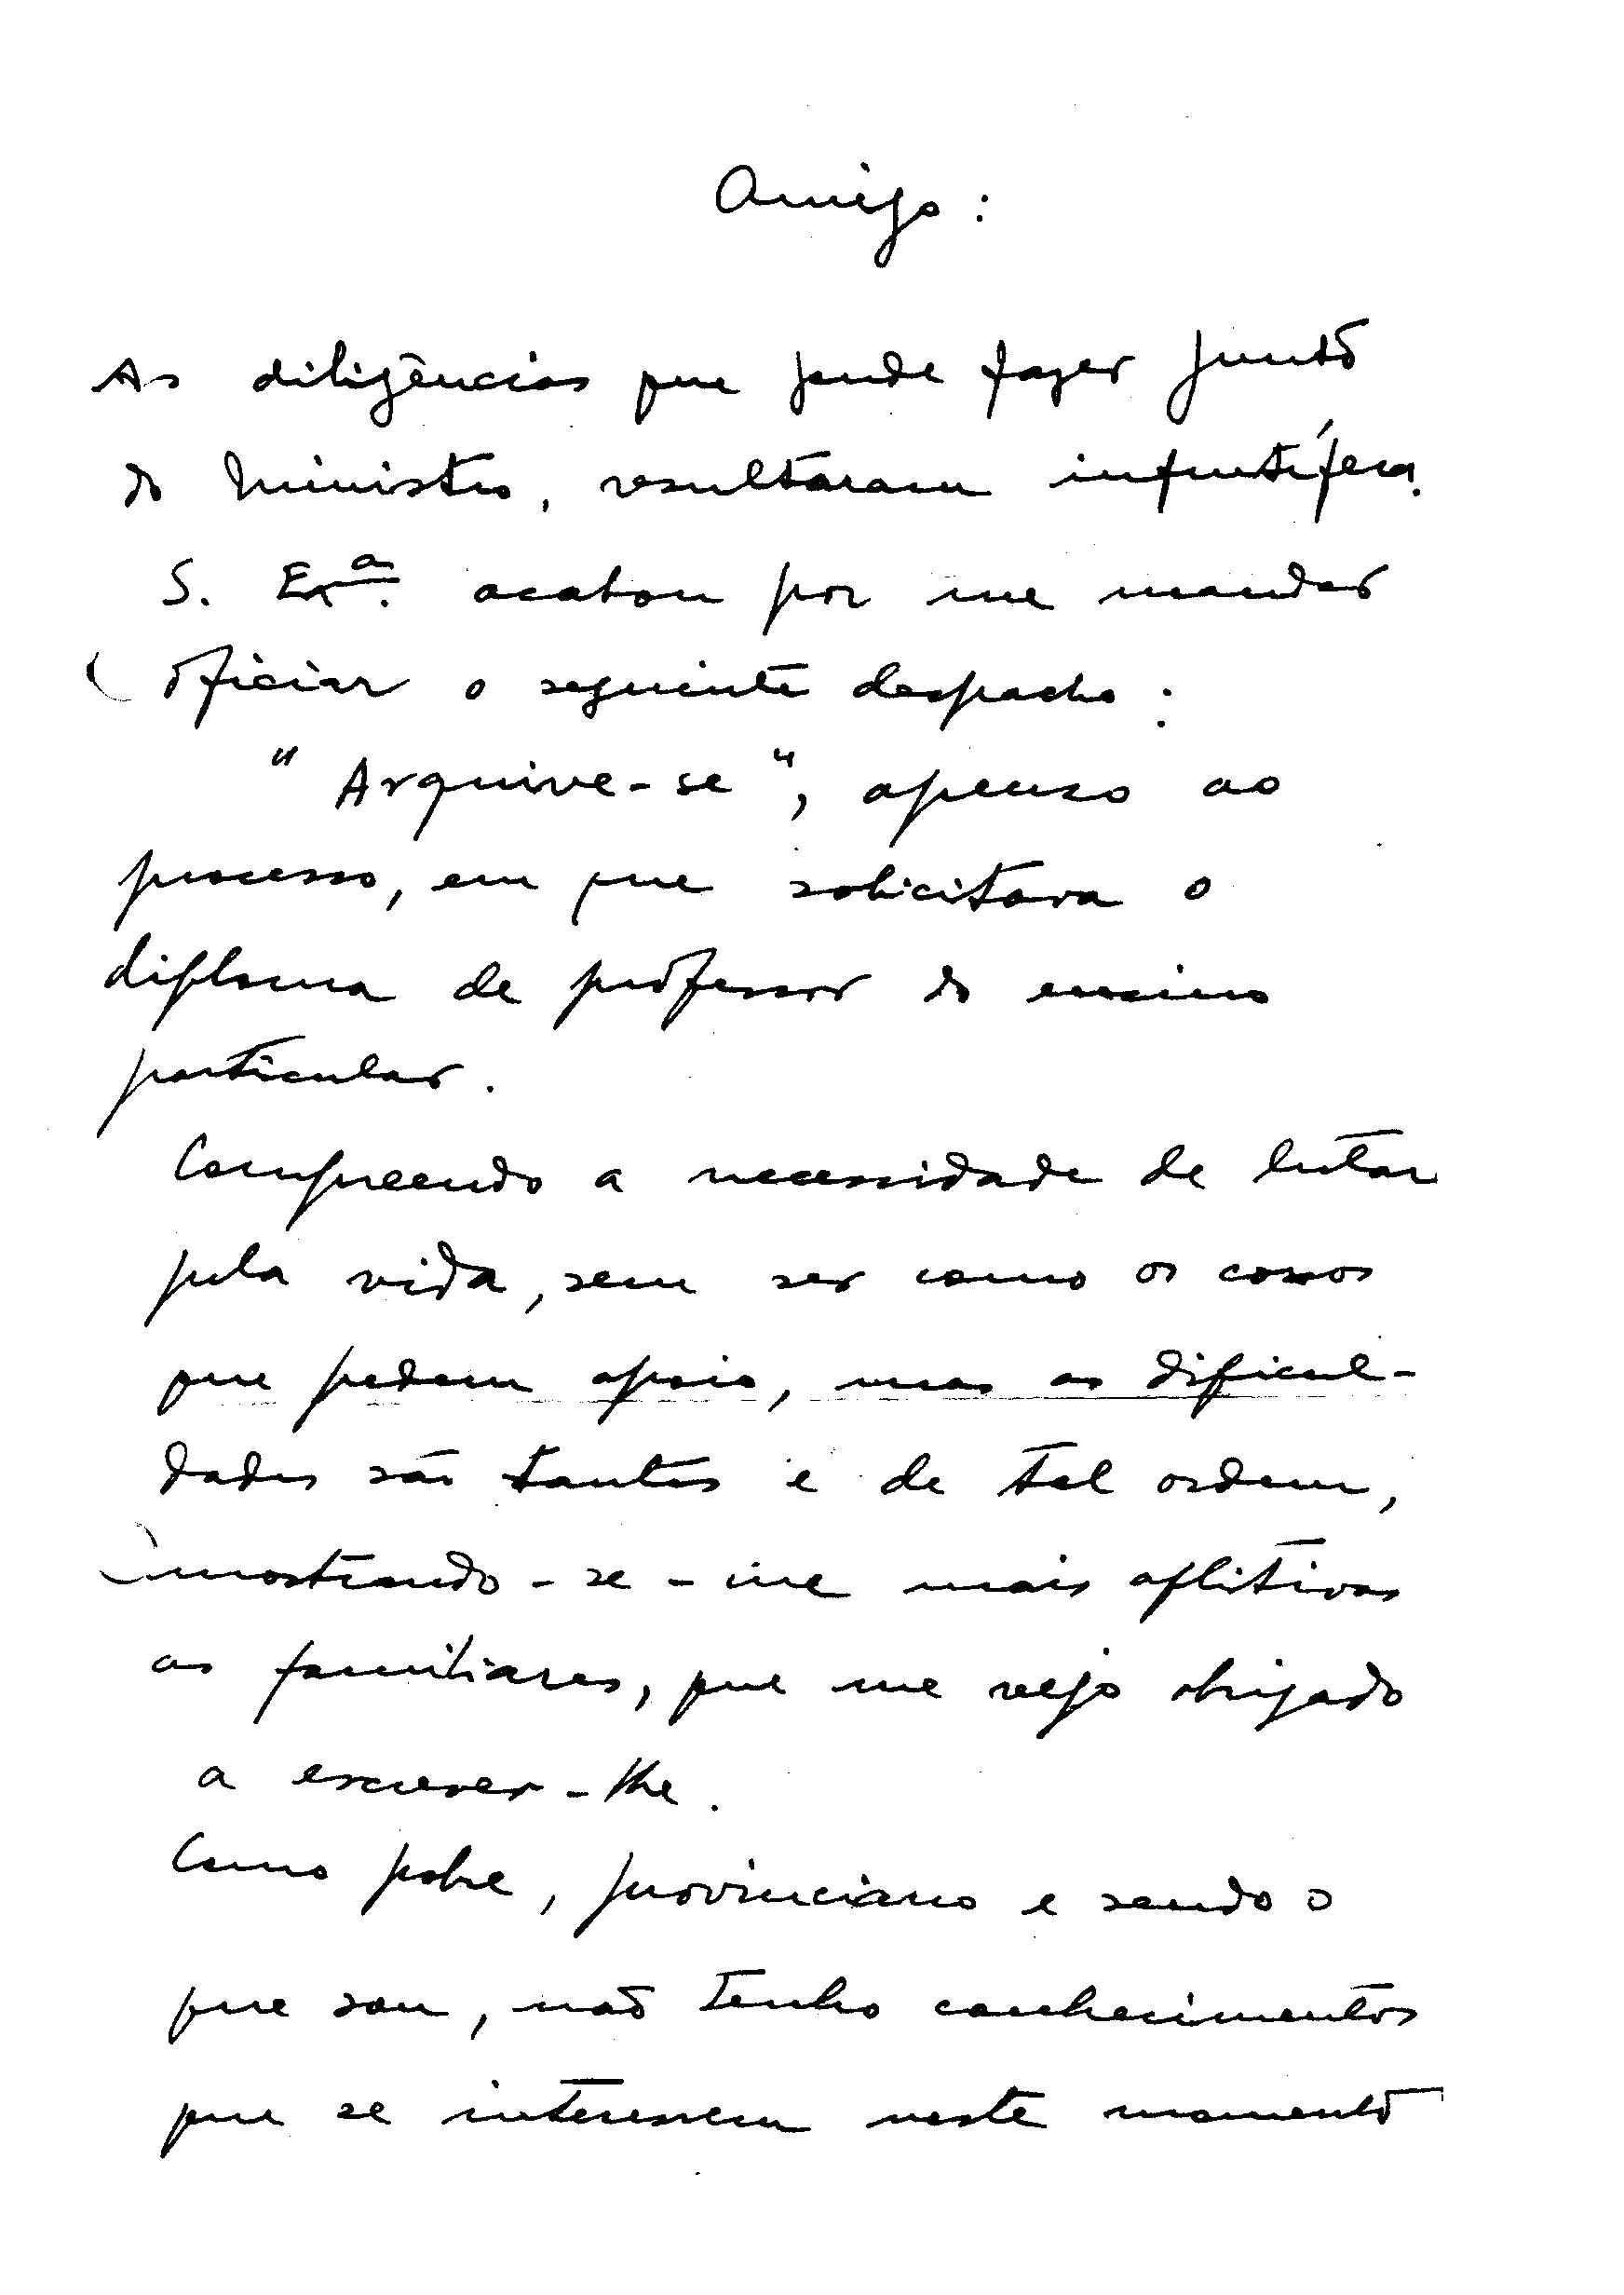 Amigo:
As diligências que pude fazer junto
do Ministro, resultaram infrutífera.
S. Exª. acabou por me mandar
oficiar o seguinte despacho:
"Arquive-se", apenso ao
processo, em que solicitava o
diploma de professor do ensino
particular.
Compreendo a necessidade de lutar
pela vida, sem ser como os coxos
que pedem apoio, mas as dificul-
dades são tantas e de tal ordem,
mostrando-se-me mais aflitivas
as familiares, que me vejo obrigado
a escrever-lhe.
Como pobre, provinciano e sendo o
que sou, não tenho conhecimentos
que se interessem neste momento